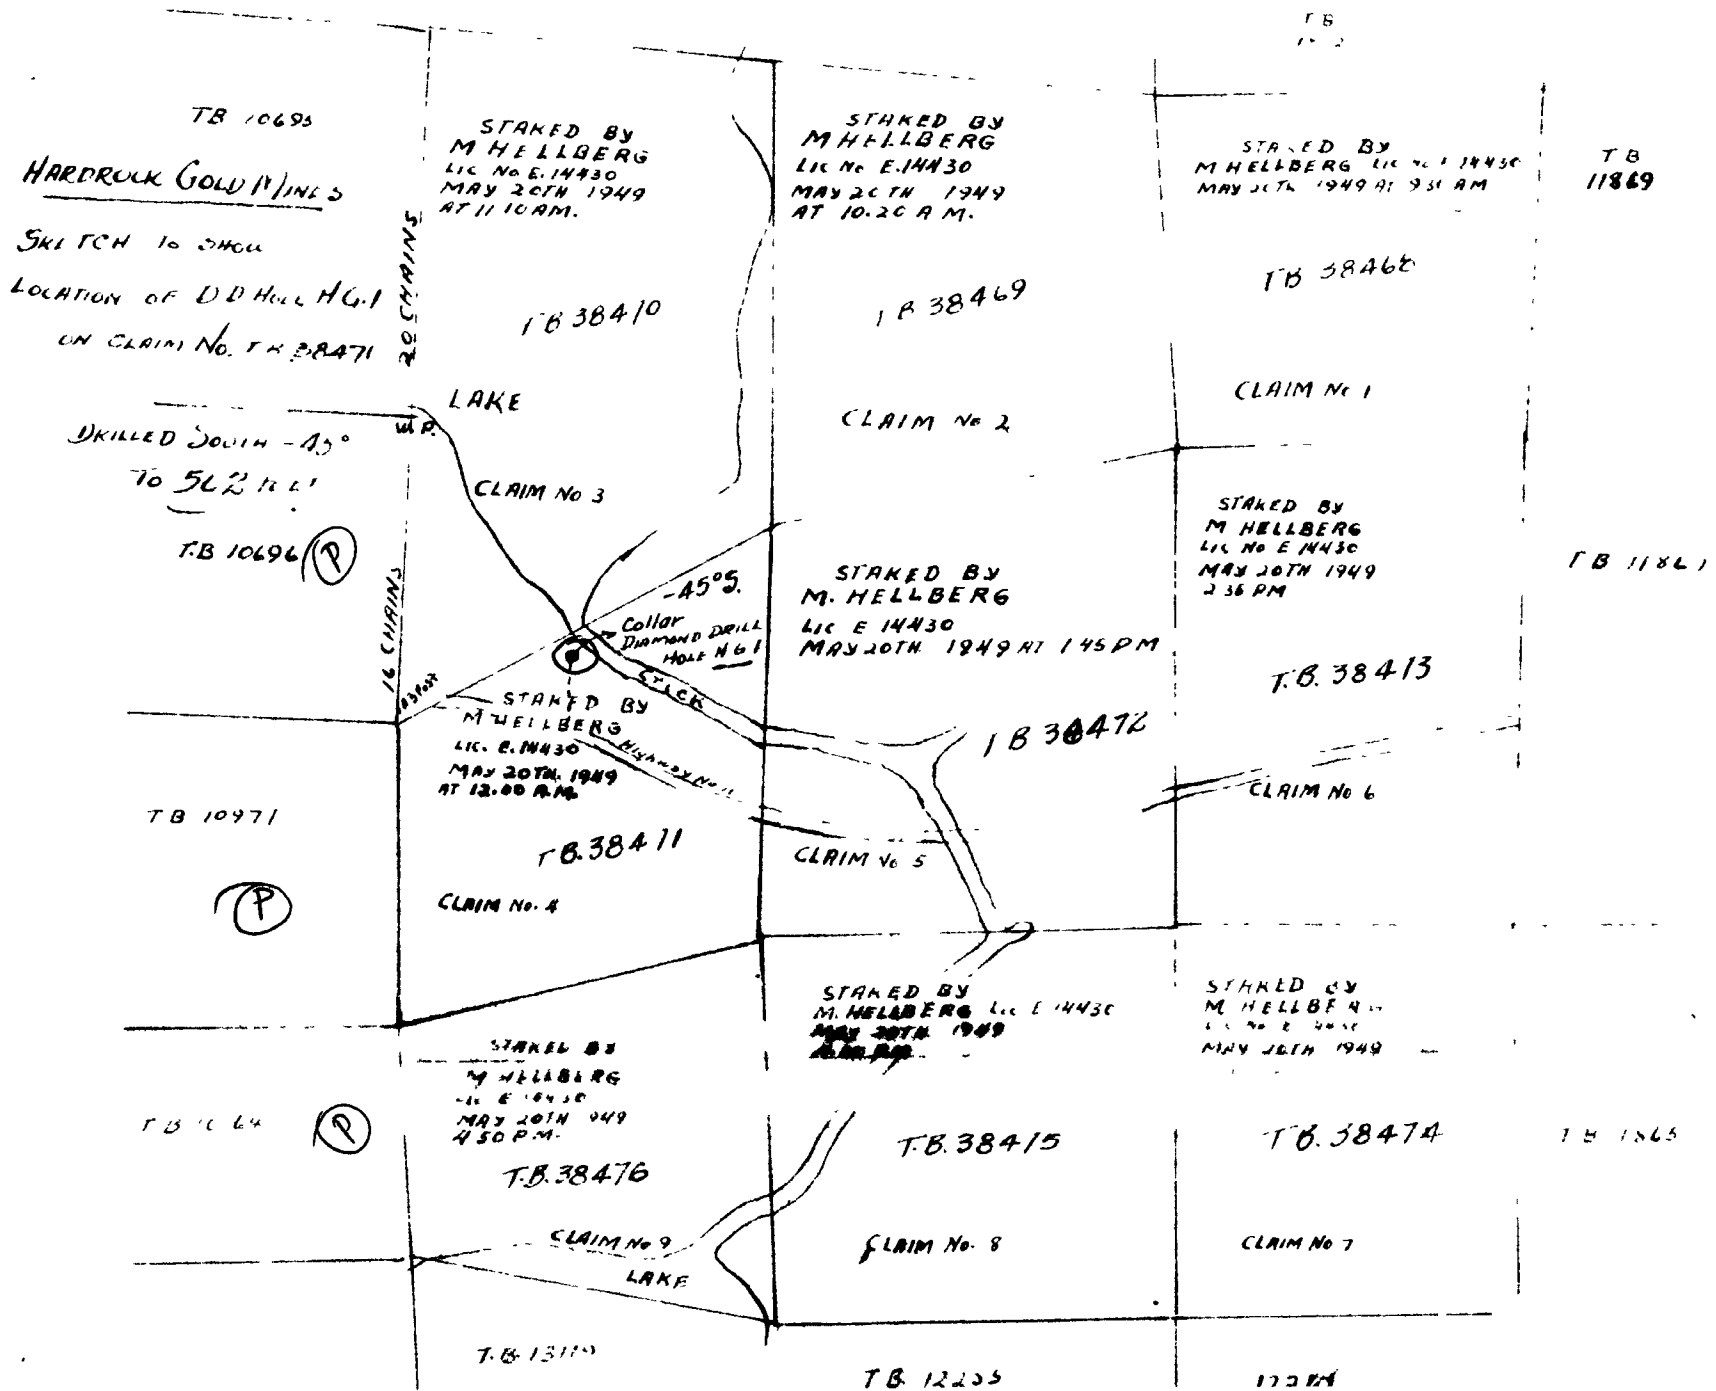 TB
TB 10695
HARDROCK GOLD MINES
SKETCH TO SHOW
LOCATION OF D D HOLE H G.1
ON CLAIM No. TB 38471
DRILLED SOUTH -45°
TO 562
T.B 10696 (P)
20 CHAINS
16 CHAINS
W.P.
No 3 Post
STAKED BY
M HELLBERG
LIC No E.14430
MAY 20TH 1949
AT 11 10 AM.
TB 38410
LAKE
CLAIM No 3
STAKED BY
M HELLBERG
LIC No E.14430
MAY 20TH 1949
AT 10.20 A M.
TB 38469
CLAIM No 2
STAKED BY
M HELLBERG LIC No E 14430
MAY 20TH 1949 AT 9 31 AM
TB 38468
CLAIM No 1
TB
11869
-45°S.
Collar
DIAMOND DRILL
HOLE H G 1
STAKED BY
M HELLBERG
LIC. E.14430
MAY 20TH. 1949
AT 12.00 A.M.
Highway No. 11
T.B.38411
CLAIM No. 4
STAKED BY
M. HELLBERG
LIC E 14430
MAY 20TH 1949 AT 1 45 PM
TB 38472
CLAIM No 5
STAKED BY
M HELLBERG
LIC No E 14430
MAY 20TH 1949
2 36 PM
T.B. 38413
CLAIM No 6
TB
TB 10971
(P)
STAKED BY
M HELLBERG
LIC E 14430
MAY 20TH 949
4 50 P.M.
T.B.38476
CLAIM No 9
LAKE
STAKED BY
M. HELLBERG LIC E 14430
MAY 20TH 1949
T.B.38415
CLAIM No. 8
STAKED BY
M HELLBERG
MAY 20TH 1949
T.B.38474
CLAIM No 7
TB
(P)
TB 1865
T.B
T B. 12255